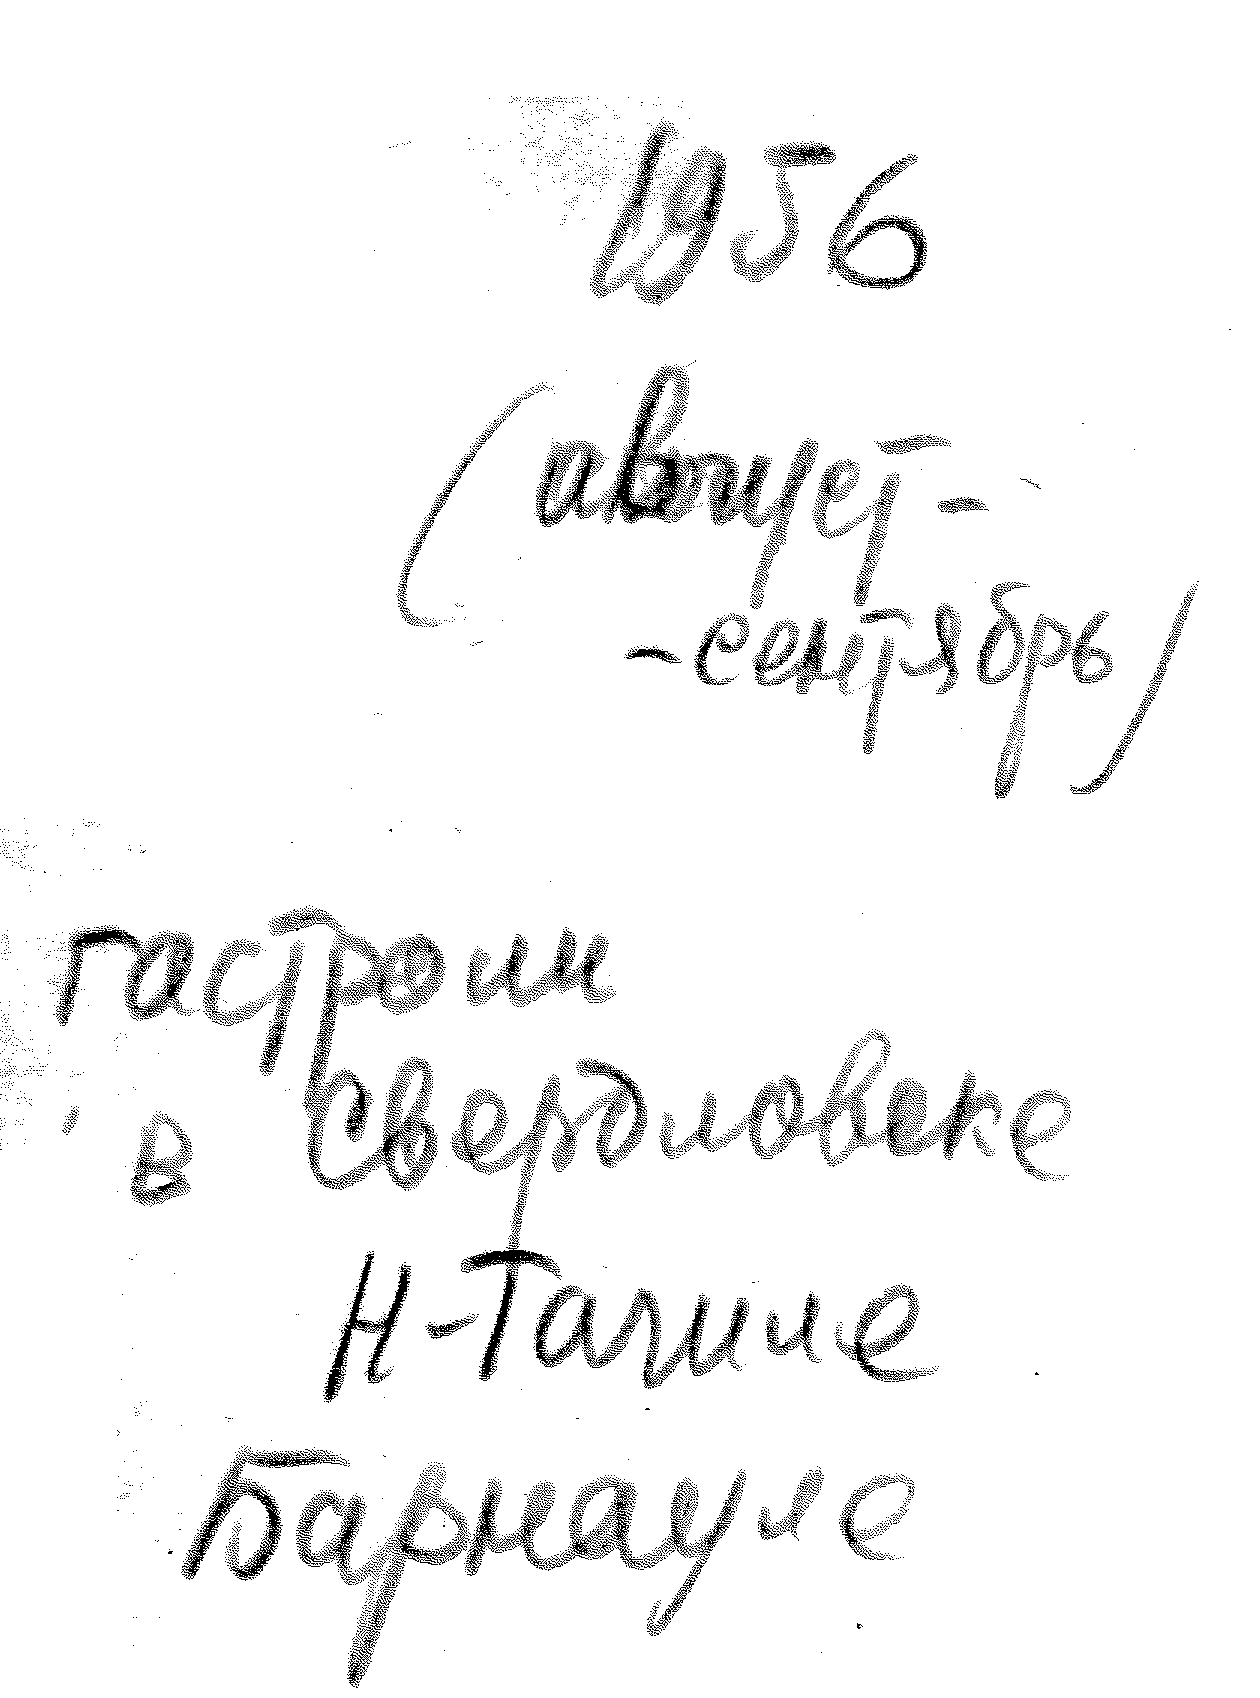 1956
(август-
-сентябрь)
гастроли
в Свердловске
Н-Тагиле
Барнауле